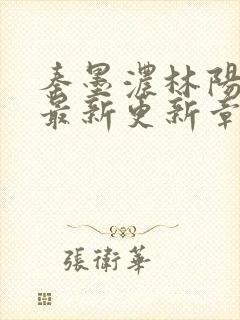 秦墨濃林陽
最新更新章
張衛華